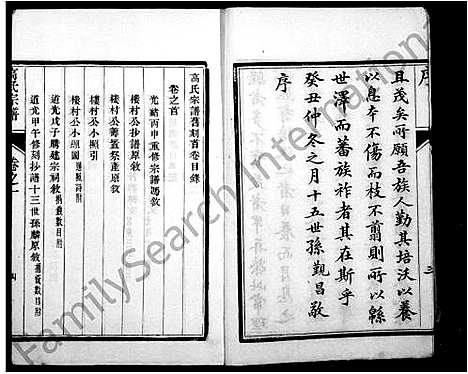 序
且茂矣所願吾族人勤其培沃以養
以息本不傷而枝不翦則所以緜
世澤而蕃族祚者其在斯乎
癸丑仲冬之月十五世孫觀昌敬
序
三
高氏宗譜舊刻首卷目錄
卷之首
光緒丙申重修宗譜馮敘
樓村公抄譜原敘
樓村公菁置祭產原敘
樓村公小照引
樓村公小照圖
道光戊子購建宗祠敘
道光甲午修刻抄譜十三世孫麟原敘
高氏宗譜
卷之一
四
FamilySearch International